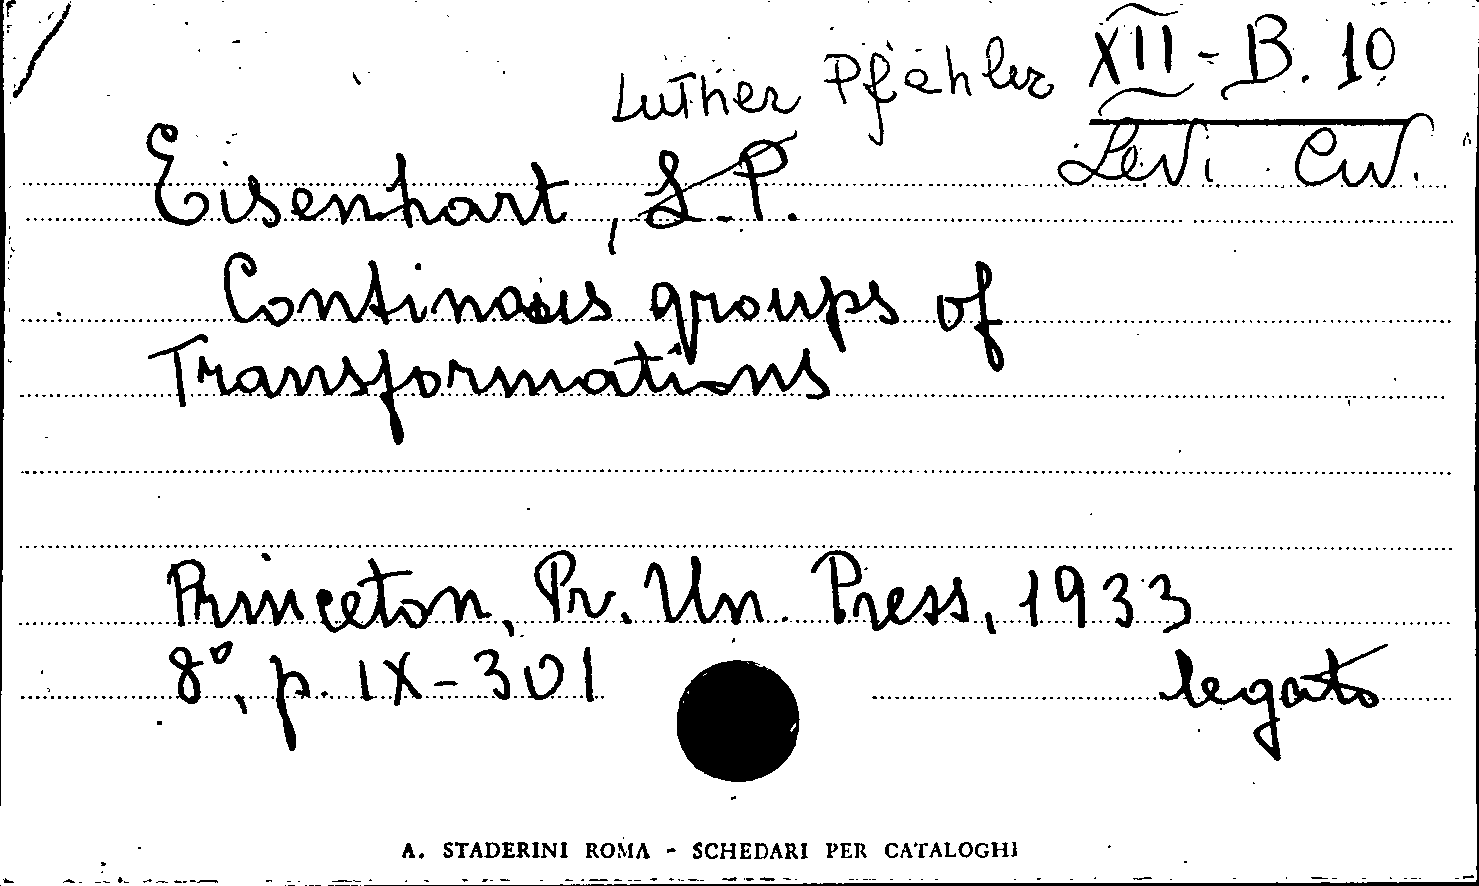 Luther Pfahler XII - B. 10
Levi Civ.
Eisenhart, L. P.
Continous groups of
Transformations
Princeton, Pr. Un. Press, 1933
8°, p. IX-301
legato
A. STADERINI ROMA - SCHEDARI PER CATALOGHI